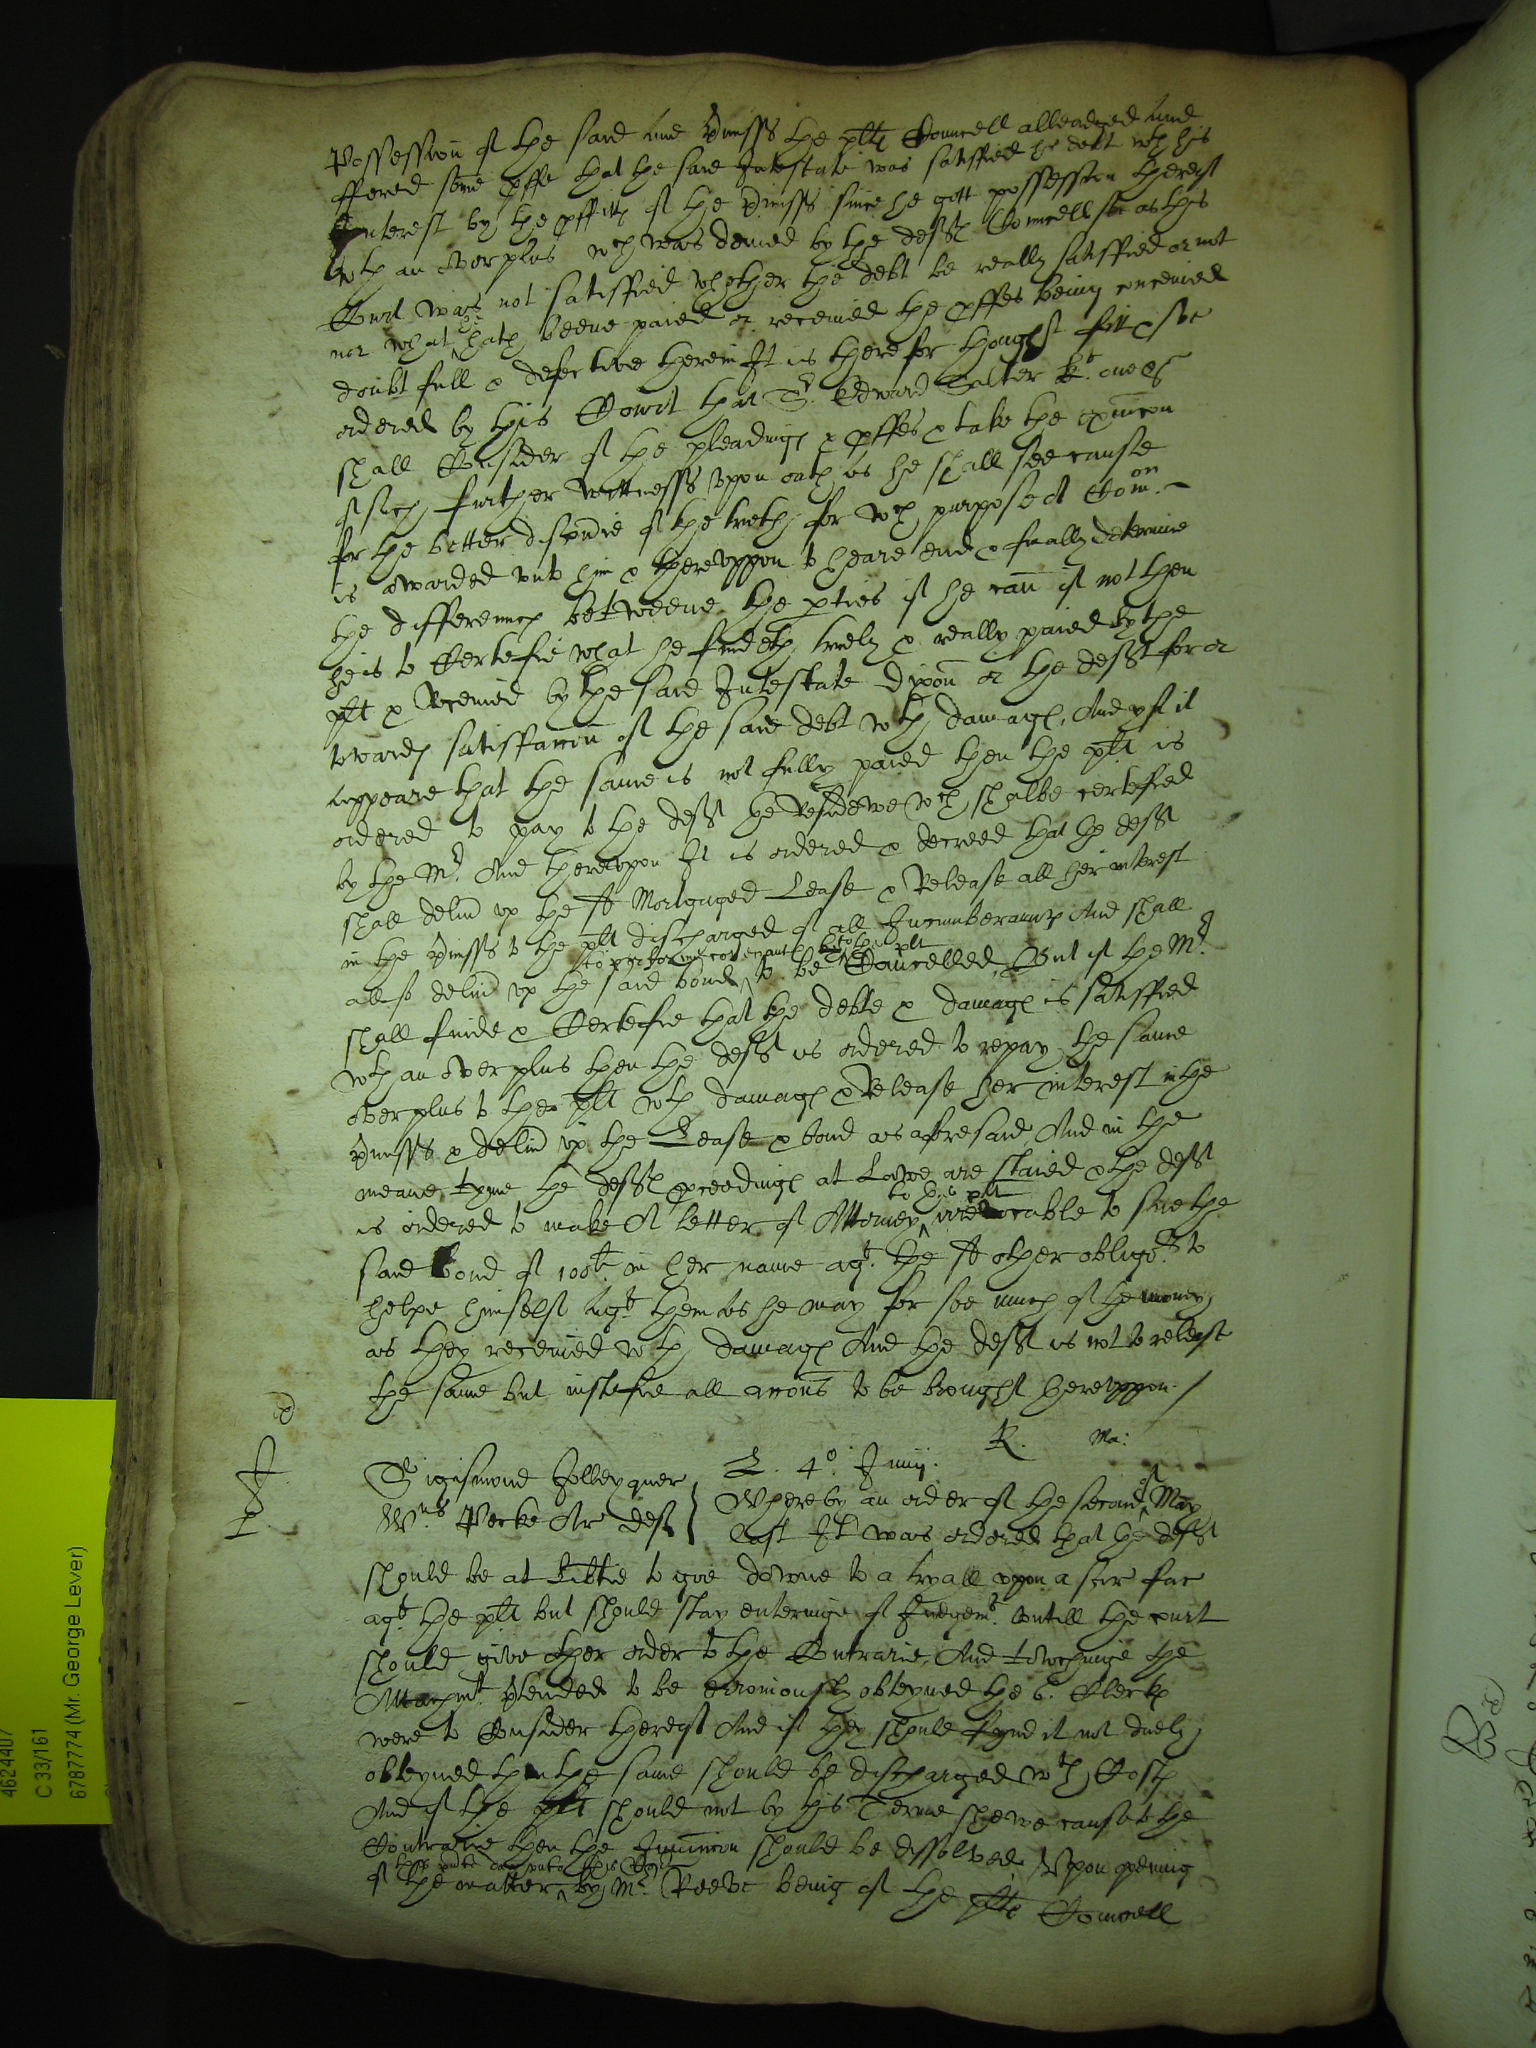 Possession of the said land p'misss the plts Councell alleadged and
offered some p'ffe that the said Intestate was satisfied his debt wth his
Interest by the pffitts of the p'misss since he gott possession thereof
wth an overplus wch was denied by the defts Councell soe as this
Court was not satisfied whether the debt be really satisfied or not
nor what hath beene paied or received the pffes being conceived
doubtfull & defective therein It is therefor thought fitt & soe
ordered by this Court that Sr. Edward Salter Kt. one &c
shall Consider of the pleadings & pffes & take the exaicon
of such further Wittnesss upon oath as he shall see cause
for the better discovie of the truth for wch purpose a Com.on
is awarded unto him & thereuppon to heare end & finally determine
the differences betweene the pties if he can if not then
he is to Certefie what he findeth truely & really paied by the
plt & Received by the said Intestate or the deft for or
towards satisfaccon of the said debt wth damages, And yf it
appeare that the same is not fully paied then the plt is
ordered to pay to the deft the Residewe wch shalbe certefied
by the Mr. And thereupon It is ordered & decreed that the deft
shall deliv up the sd Mortgaged Lease & Release all her interest
in the p'misss to the plt discharged of all Incumberances And shall
to performe covenants to the plt
also deliv up the said bond to be Cancelled, But if the Mr.
shall finde & Certefie that the debte & damages is satisfied
wth an overplus then the deft is ordered to repay the same
overplus to the plt wth damages & Release her interest in the
p'misss & deliv up the Lease & bond as aforesaid, And in the
meane tyme the defts pceedings at Lawe are staied & the deft
to the plt
is ordered to make A letter of Attorney irrevocable to sue the
said bond of 100li. in her name agt. the sd other obligors to
helpe himselfe agt. them as he may for soe much of the money
as they received wth damages And the deft is not to release
the same but iustefie all accons to be brought thereuppon./
R. Ma:
Sigismond Zolley quer
Wms Pecke Ar deft
L. 4o. Junij.
Whereby an order of the second of May
last It was ordered that the deft
should be at Libtie to goe downe to a tryall uppon a scir fac
agt. the plt but should stay enteringe of Judgemt. untill the court
should give other order to the Contrarie, And towchinge the
Attachmt. p'tended to be erroniously obteyned the 6. Clerks
were to Consider thereof And if they should fynd it not duely
obteyned then the same should be discharged wth Costs
And if the plt should not by this Terme shewe cause to the
Contrarie then the Iniuncon should be dissolved, Upon openinge
this pnte day unto this Court
of the matter by Mr. Reeve being of the plts Councell
4624407
C 33/161
6787774 (Mr. George Lever)